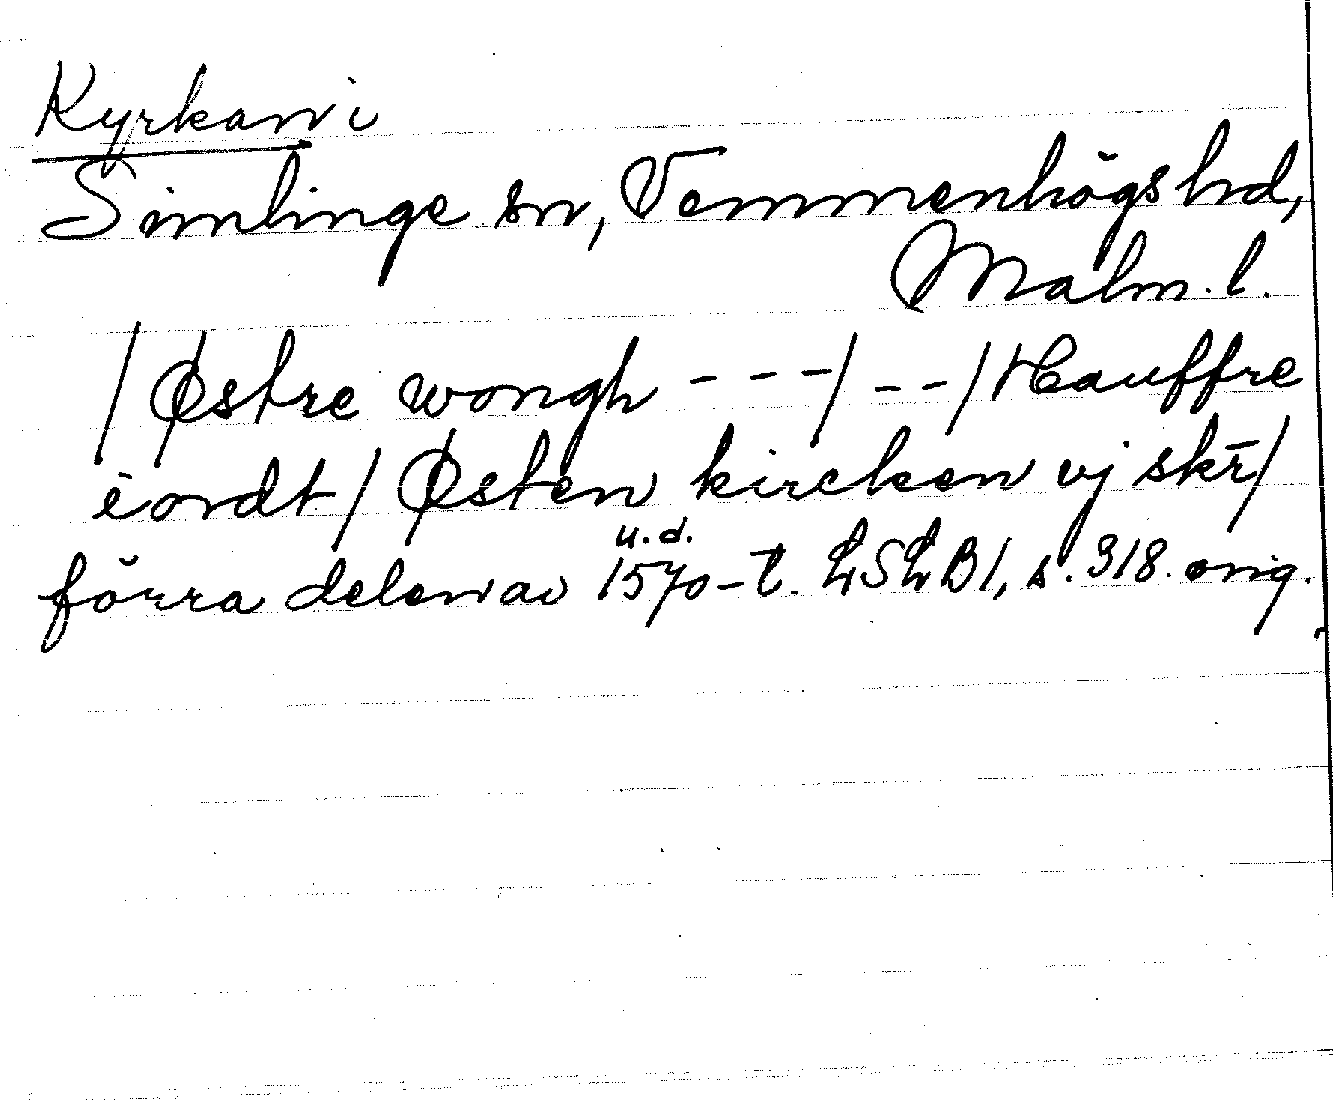 Kyrkan i
Simlinge sn, Vemmenhögs hd,
Malm. l.
/Østre wongh - - -/ - -/Hauffre
iordt/ Østen kircken vj skr̄/
u.d.
förra delen av 1570-t. LSLB1, s. 318. orig.